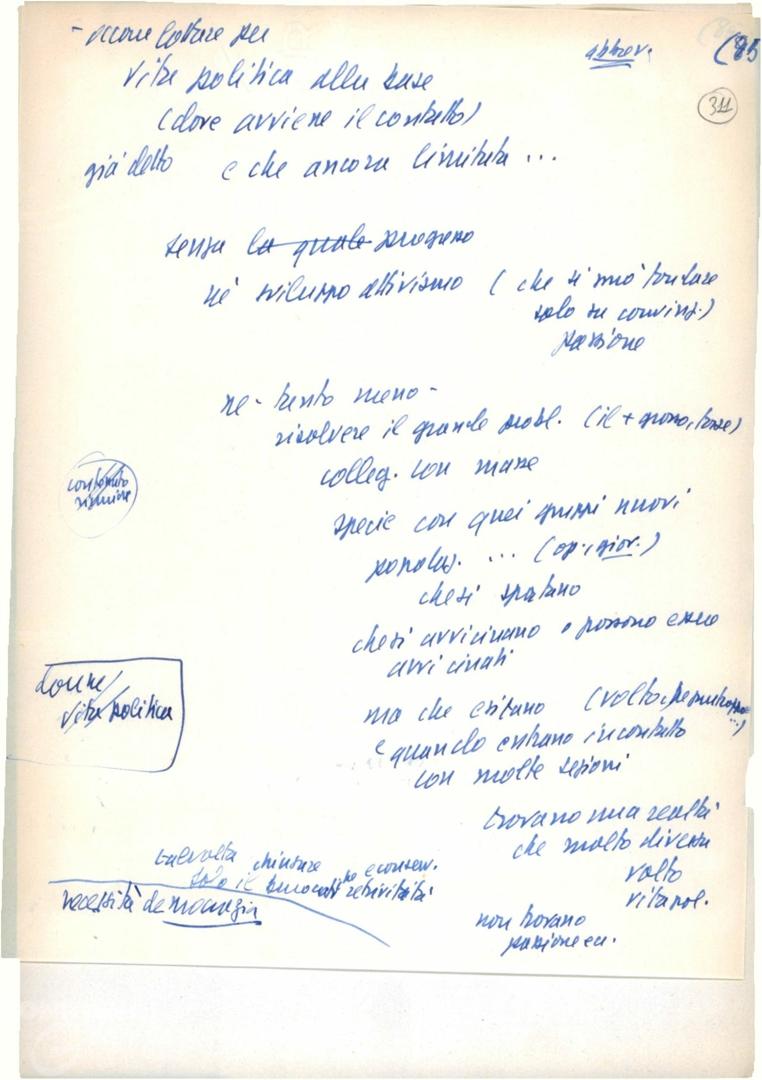 - occorre lottare per
abbrev.
(85
311
vita politica alla base
(dove avviene il contatto)
già detto e che ancora limitata ...
senza la quale progresso
nè sviluppo attivismo (che si può fondare
solo su convinz.)
passione
nè - tanto meno -
risolvere il grande probl. (il + grosso, forse)
colleg. con masse
specie con quei gruppi nuovi
popolaz. ... (op. , giov.)
che si spostano
che si avvicinano o possono essere
avvicinati
donne
vita politica
ma che esitano (volto
e quando entrano in contatto
con molte sezioni
trovano una realtà
che molto diversa
volto
vita pol.
talvolta chiusure e conserv.
necessità democrazia
non trovano
passione ecc.